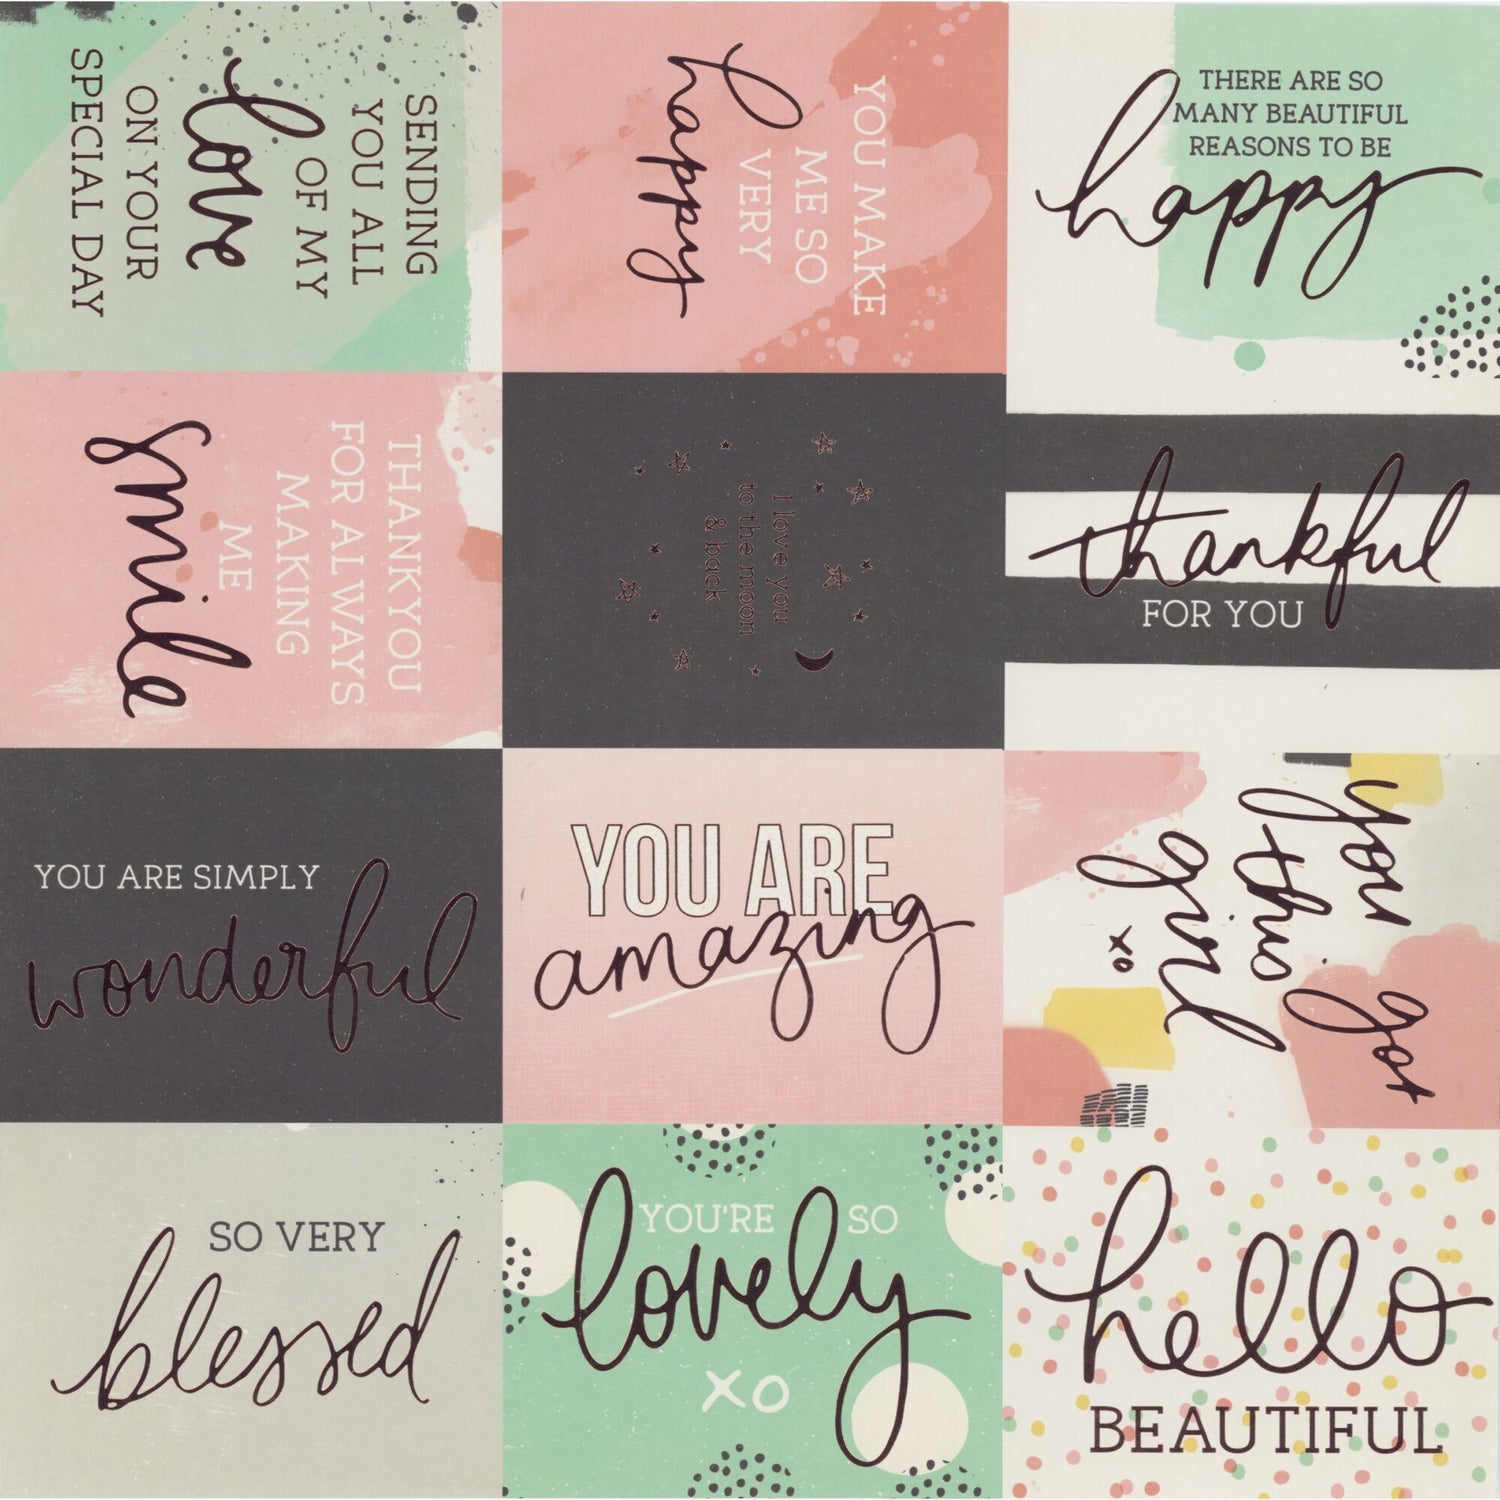 SENDING
YOU ALL
OF MY
love
ON YOUR
SPECIAL DAY
YOU MAKE
ME SO
VERY
happy
THERE ARE SO
MANY BEAUTIFUL
REASONS TO BE
happy
THANKYOU
FOR ALWAYS
MAKING
ME
smile
I love you
to the moon
& back
thankful
FOR YOU
YOU ARE SIMPLY
wonderful
YOU ARE
amazing
you got
this
girl
xo
SO VERY
blessed
YOU'RE SO
lovely
xo
hello
BEAUTIFUL